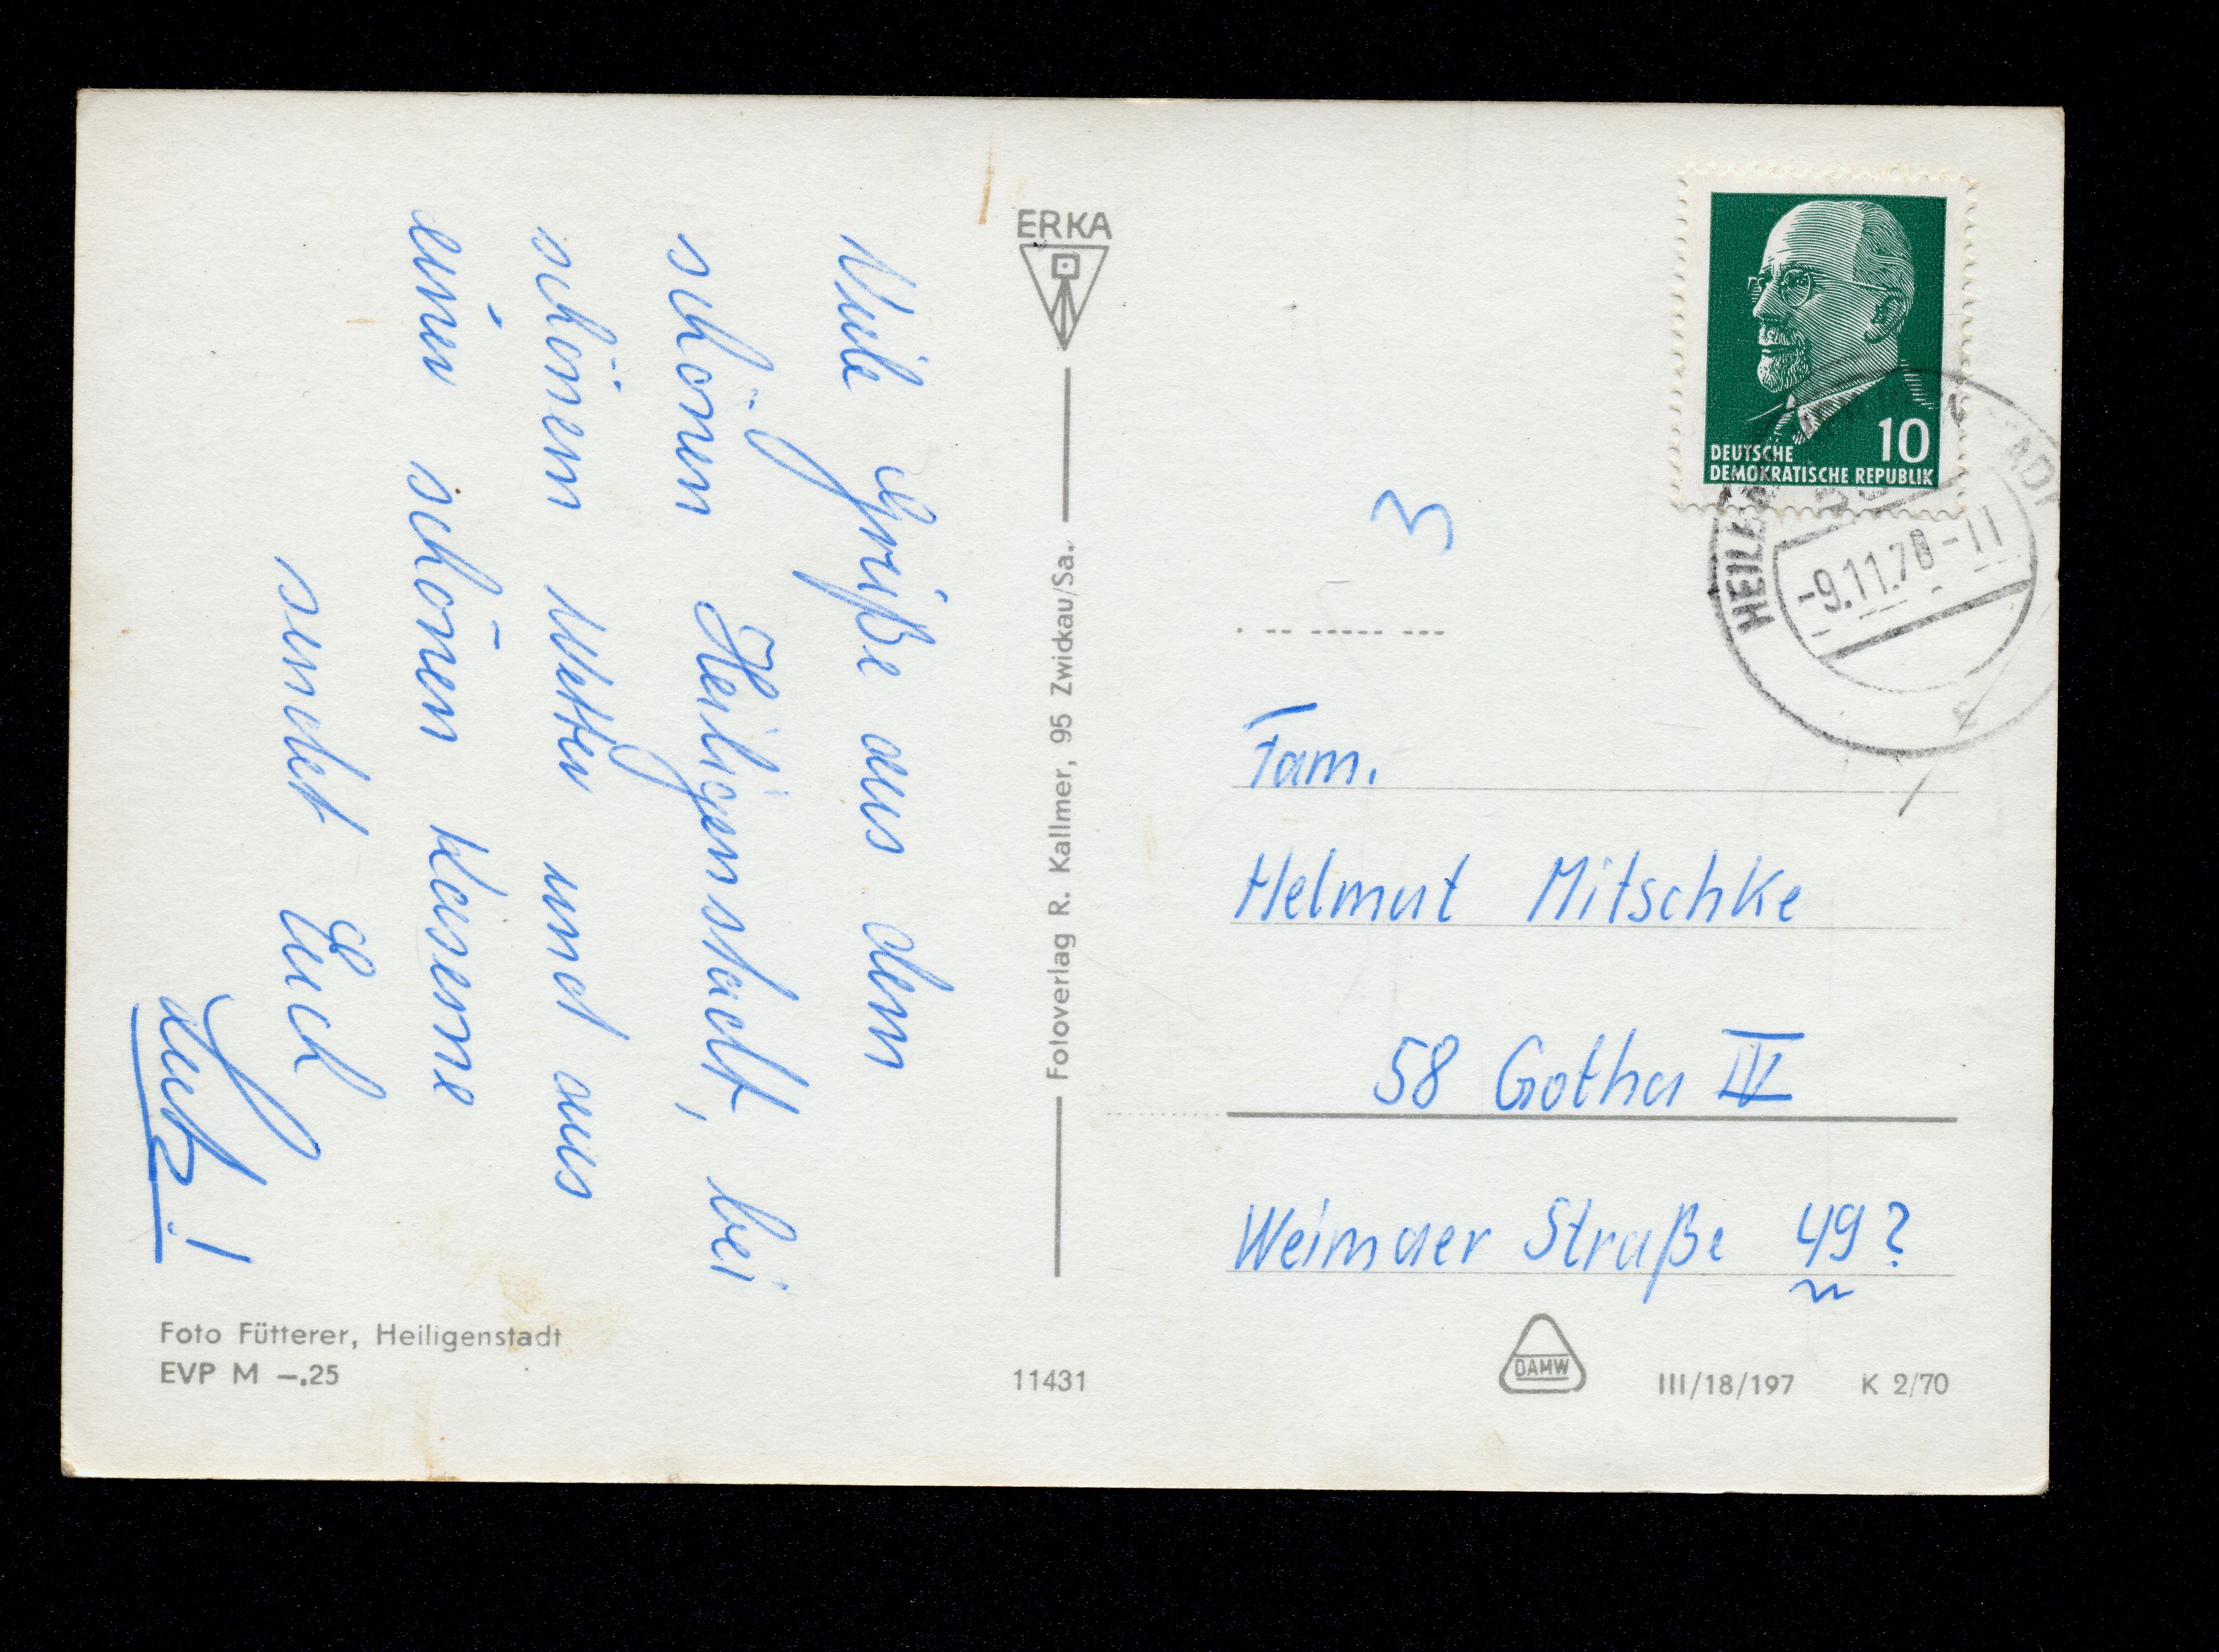 Viele Grüße aus dem
schönen Heiligenstadt, bei
schönem Wetter und aus
einer schönen Kaserne
sendet Euch
Lutz!
Foto Fütterer, Heiligenstadt
EVP M –.25
ERKA
Fotoverlag R. Kallmer, 95 Zwickau/Sa.
11431
10
DEUTSCHE
DEMOKRATISCHE REPUBLIK
-9.11.70-11
3
Fam.
Helmut Mitschke
58 Gotha IV
Weimaer Straße 49?
DAMW
III/18/197 K 2/70